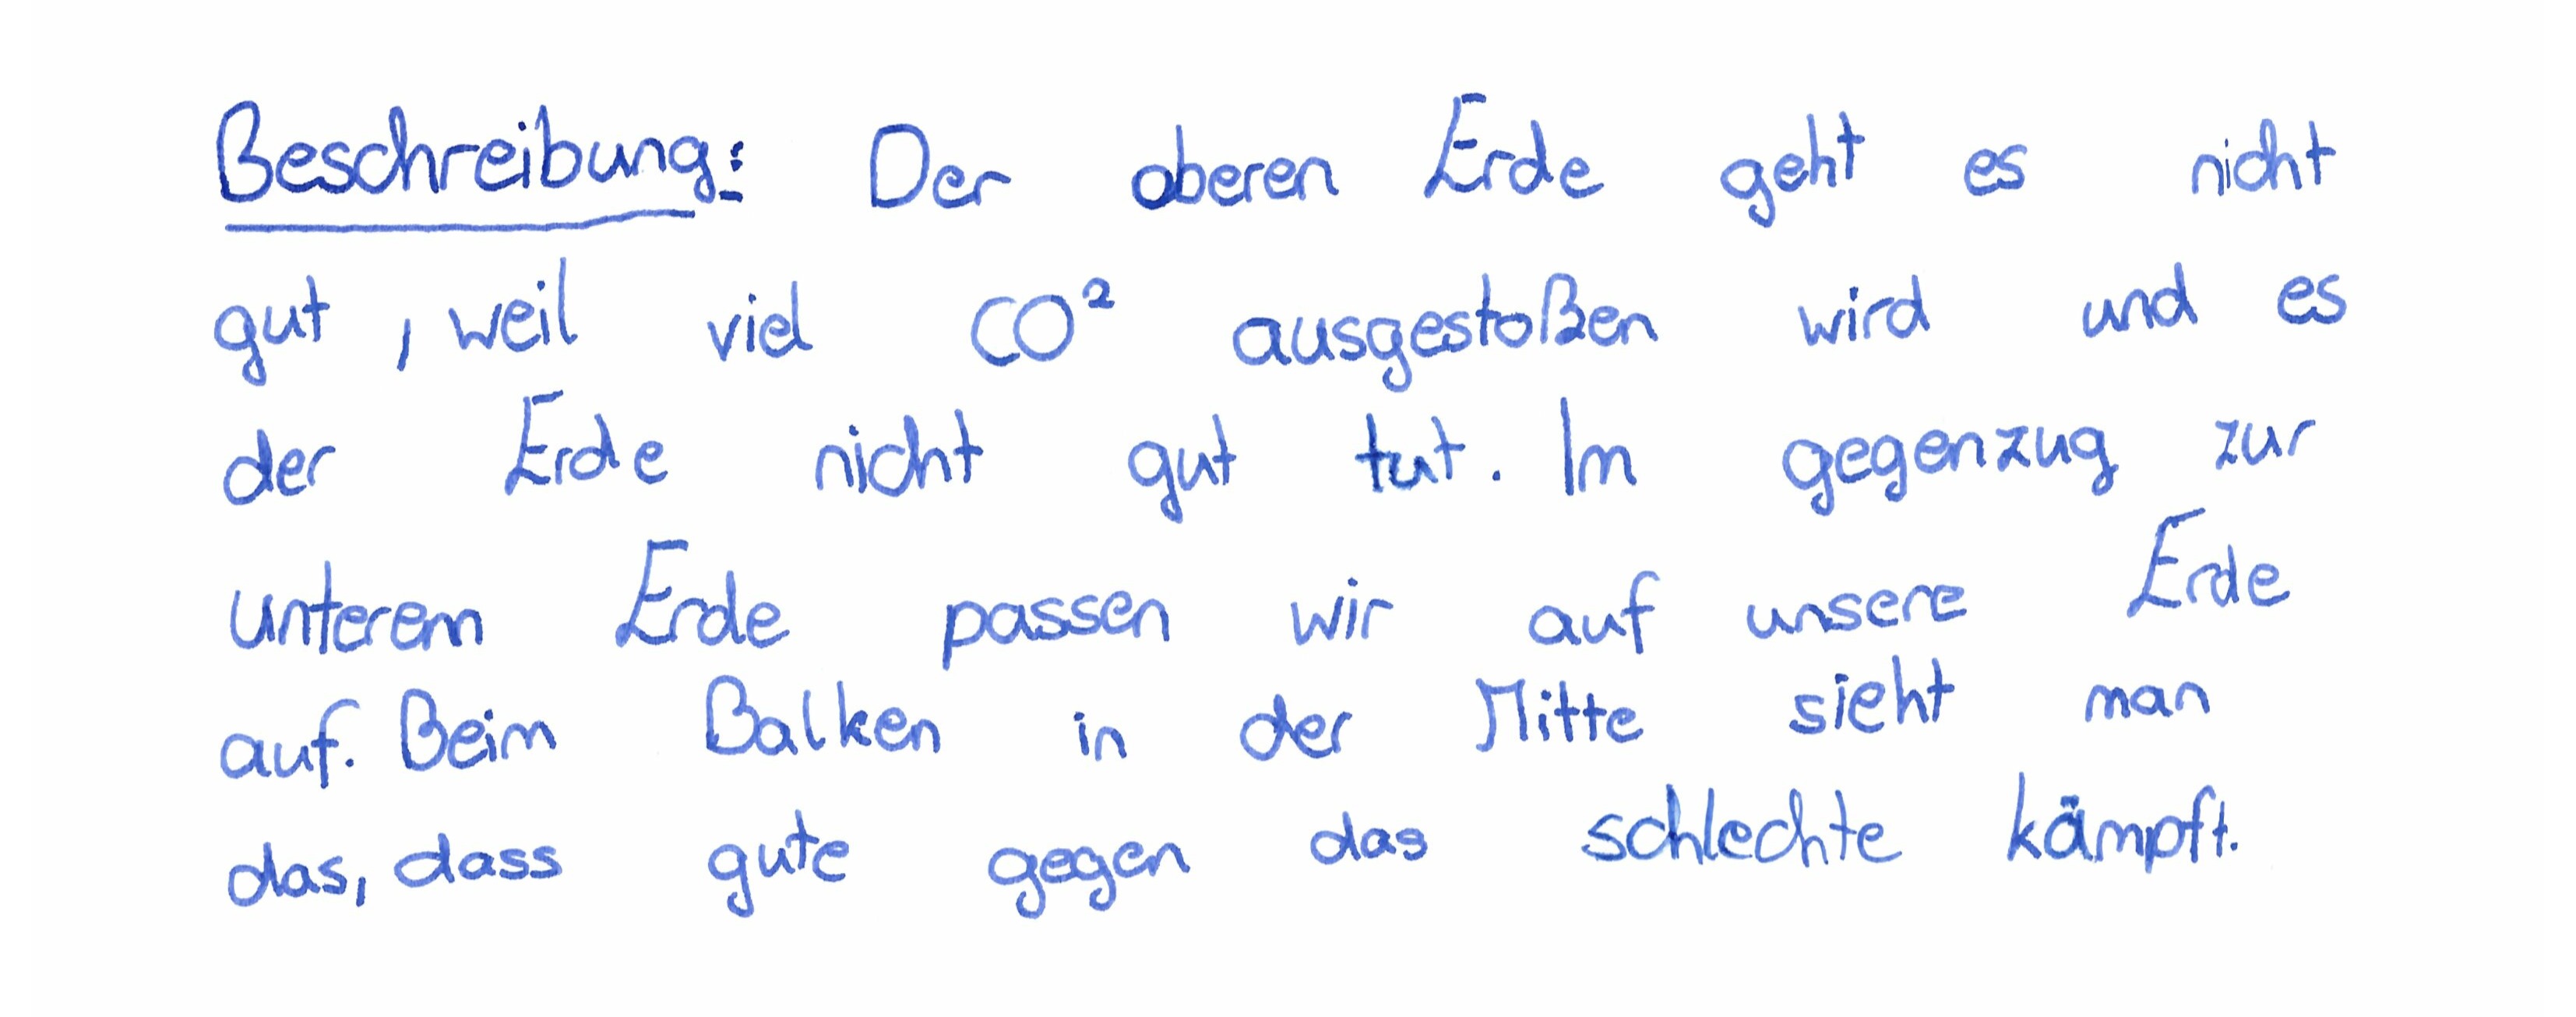 Beschreibung: Der oberen Erde geht es nicht
gut, weil viel CO² ausgestoßen wird und es
der Erde nicht gut tut. Im gegenzug zur
unterem Erde passen wir auf unsere Erde
auf. Beim Balken in der Mitte sieht man
das, dass gute gegen das schlechte kämpft.